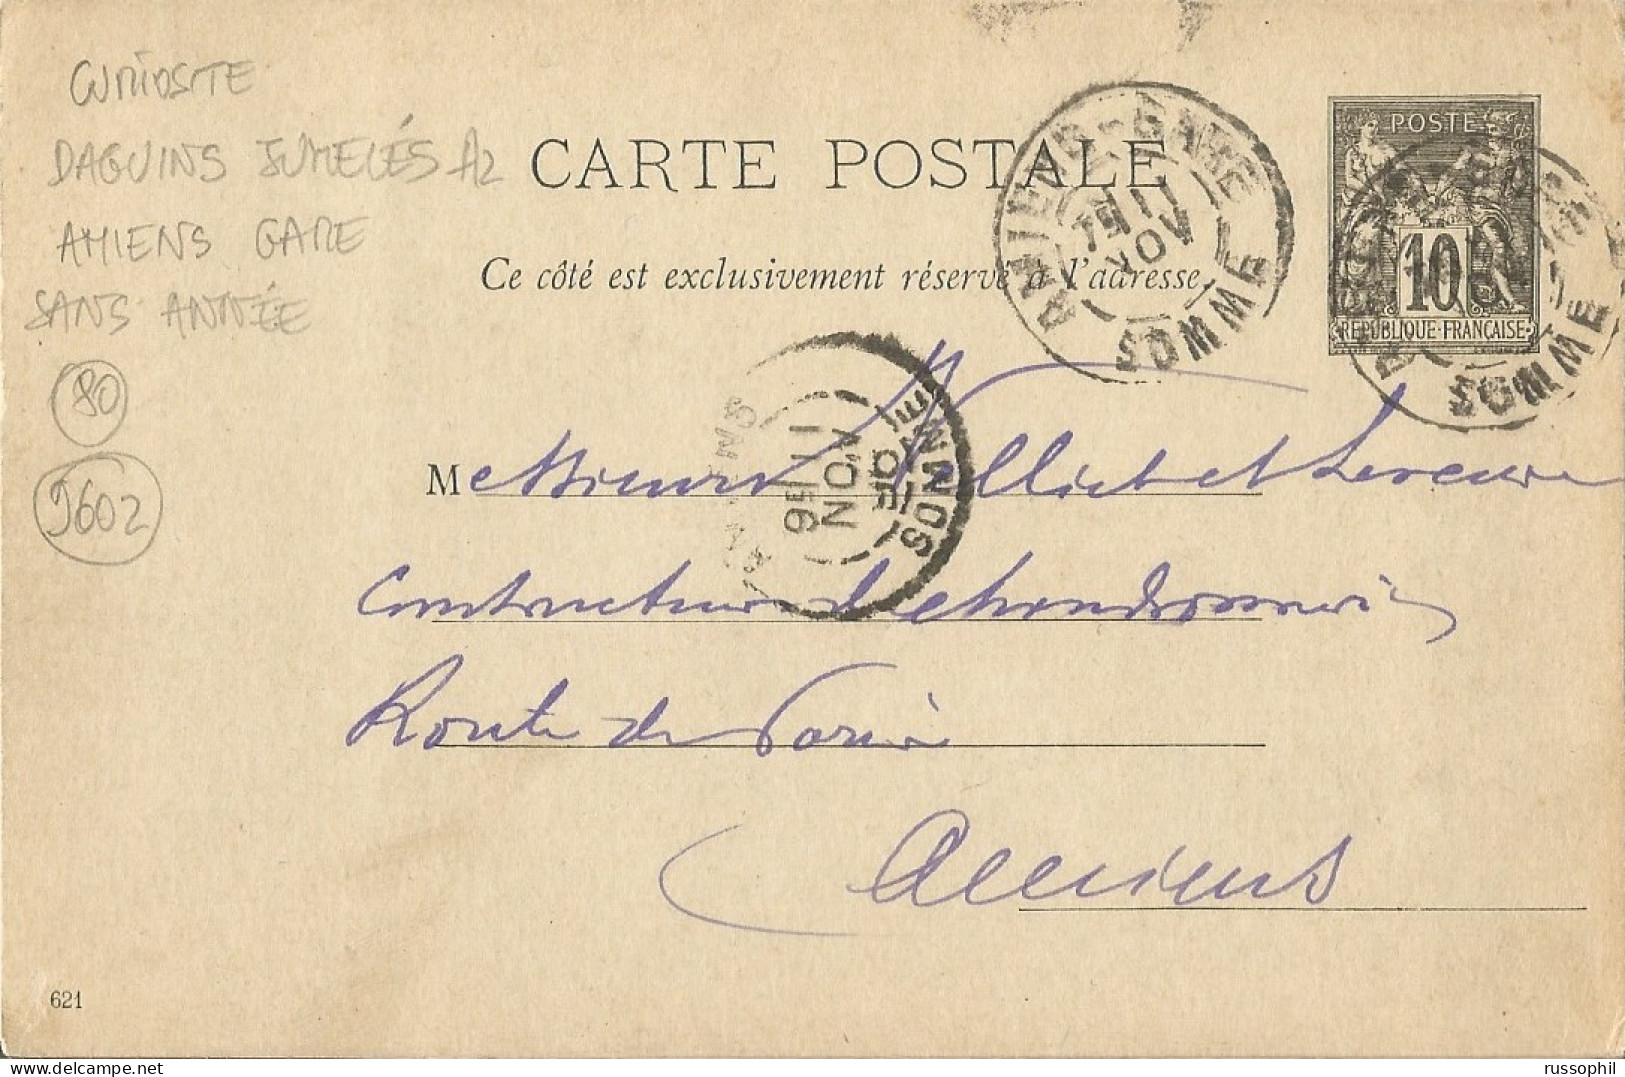 CURIOSITE
DAGUINS JUMELÉS A2
AMIENS GARE
SANS ANNÉE
80
9602
CARTE POSTALE
Ce côté est exclusivement réservé à l'adresse.
POSTE
10
REPUBLIQUE·FRANÇAISE
AMIENS-GARE
11
NOV
SOMME
SOMME
AMIENS
11
NOV
95
SOMME
Messieurs et
Constructeurs de
Route de Paris
Amiens
621
russophil